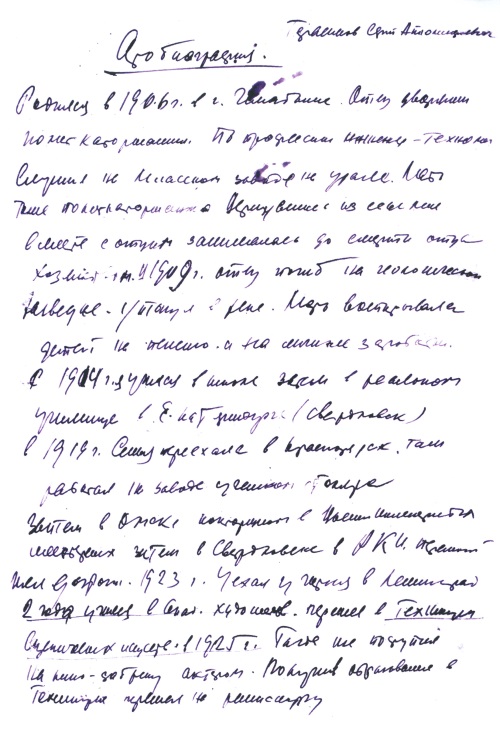 Герасимов Сергей Аполлинариевич
Автобиография.
Родился в 1906 г. в г. Челябинске. Отец дворянин
политкаторжанин. По профессии инженер-технолог
Служил на Миасском заводе на Урале. Мать
тоже политкаторжанка из ссылки
вместе с отцом занималась до смерти отца
1909 г. отец погиб на геологической
разведке. Утонул в реке. Мать воспитывала
детей на пенсию и на личные заработки.
С 1914 г. учился в школе затем в реальном
училище в Екатеринбурге (Свердловск)
в 1919 г. Семья переехала в Красноярск, там
работал на заводе учеником столяра
Затем в Омске
затем в Свердловске в РКИ
1923 г. Уехал учиться в Ленинград
2 года учился в худож. перешел в Техникум
Сценических искусств в 1925 г. Тогда же поступил
на кино-фабрику актером. Получив образование в
Техникуме перешел на режиссуру